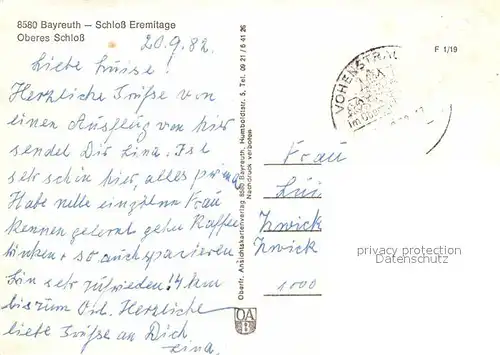 8580 Bayreuth – Schloß Eremitage
Oberes Schloß
20.9.82.
Liebe Luise!
Herzliche Grüße von
einen Ausflug von hier
sendet Dir Lina. Ist
sehr schön hier, alles prima
Habe nette einzelne Frau
kennen gelernt gehn Kaffee
trinken + so auch spazieren
Bin sehr zufrieden! 4 km
bis zum Ort. Herzliche
liebe Grüße an Dich
Lina.
Oberfr. Ansichtskartenverlag 8580 Bayreuth, Humboldtstr. 5, Tel. 09 21 / 6 41 26
Nachdruck verboten
OA
F 1/19
VOHENSTRAU
Frau
Lui
Zwick
Zwick
1000
privacy protection
Datenschutz